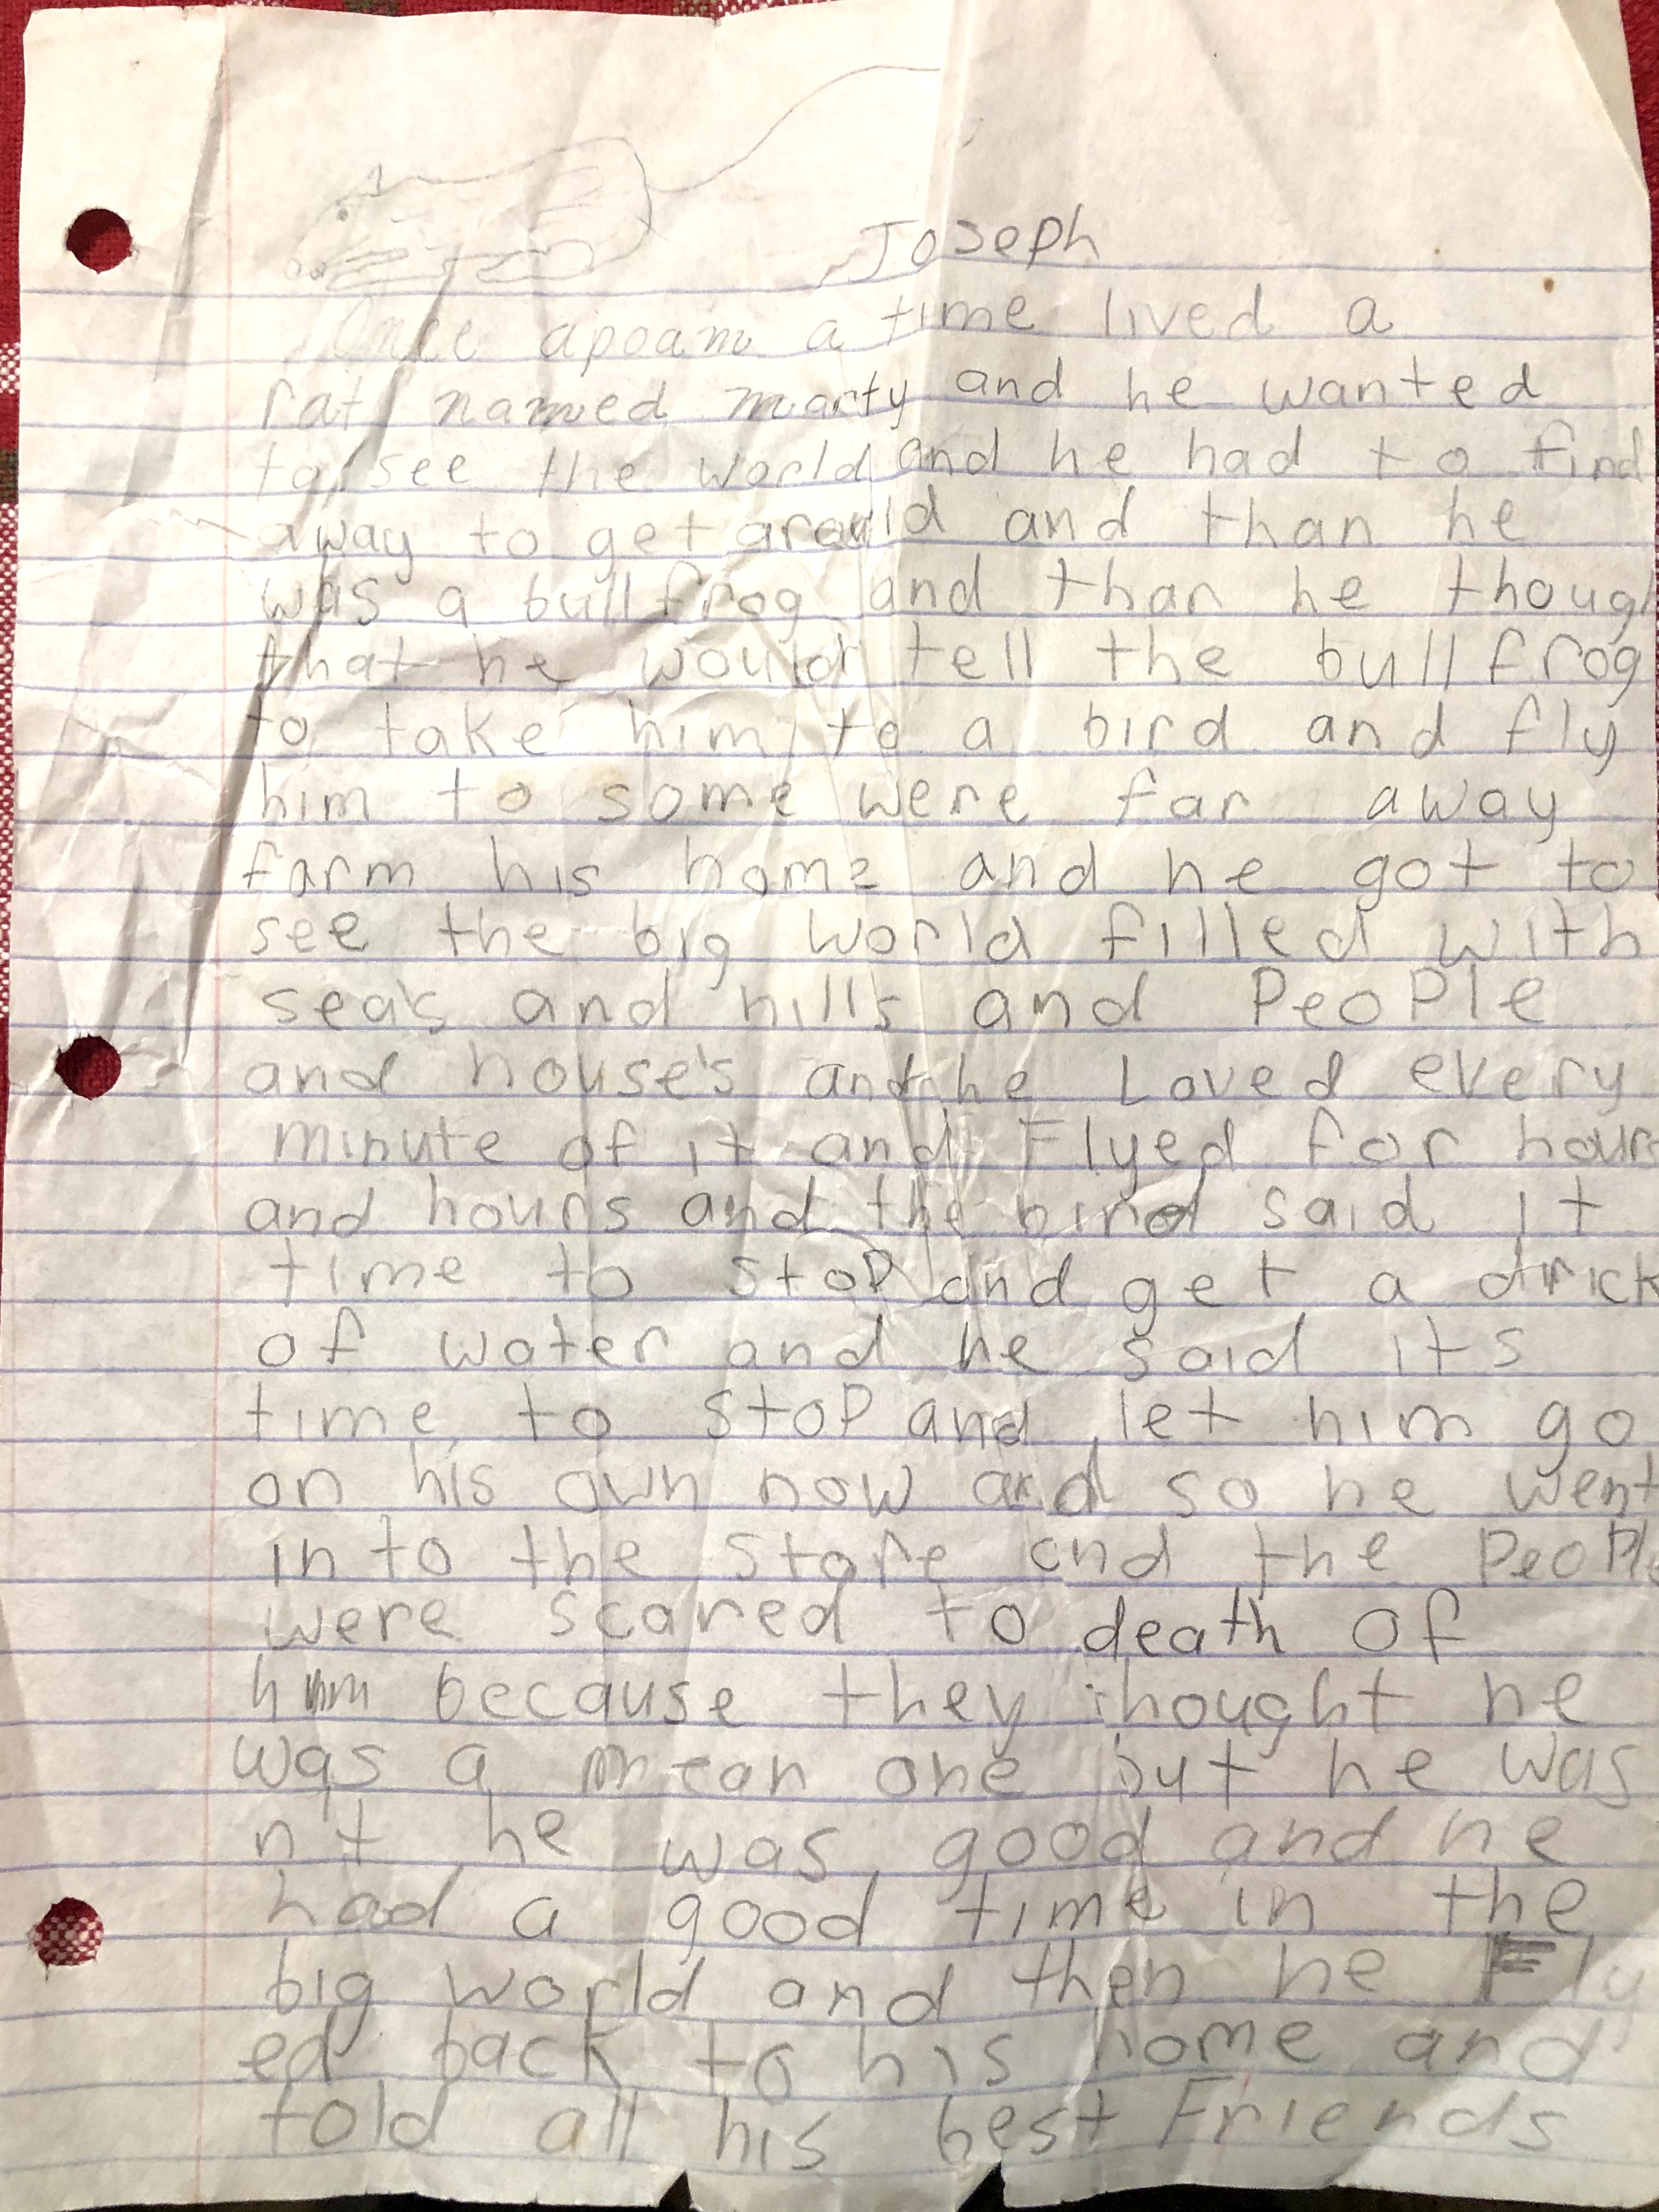 Joseph
Once apoam a time lived a
rat named marty and he wanted
to see the world and he had to find
away to get arould and than he
was a bullfrog and than he though
that he would tell the bullfrog
to take him to a bird and fly
him to some were far away
farm his home and he got to
see the big world filled with
sea's and hills and PeoPle
and house's and he Loved every
minute of it and Flyed for hours
and hours and the bird said it
time to stoP and get a drick
of water and he said its
time to stoP and let him go
on his own now and so he went
in to the store and the PeoPle
were scared to death of
him because they thought he
was a mean one but he was
n't he was good and he
had a good time in the
big world and then he Fly
ed back to his home and
told all his best Friends